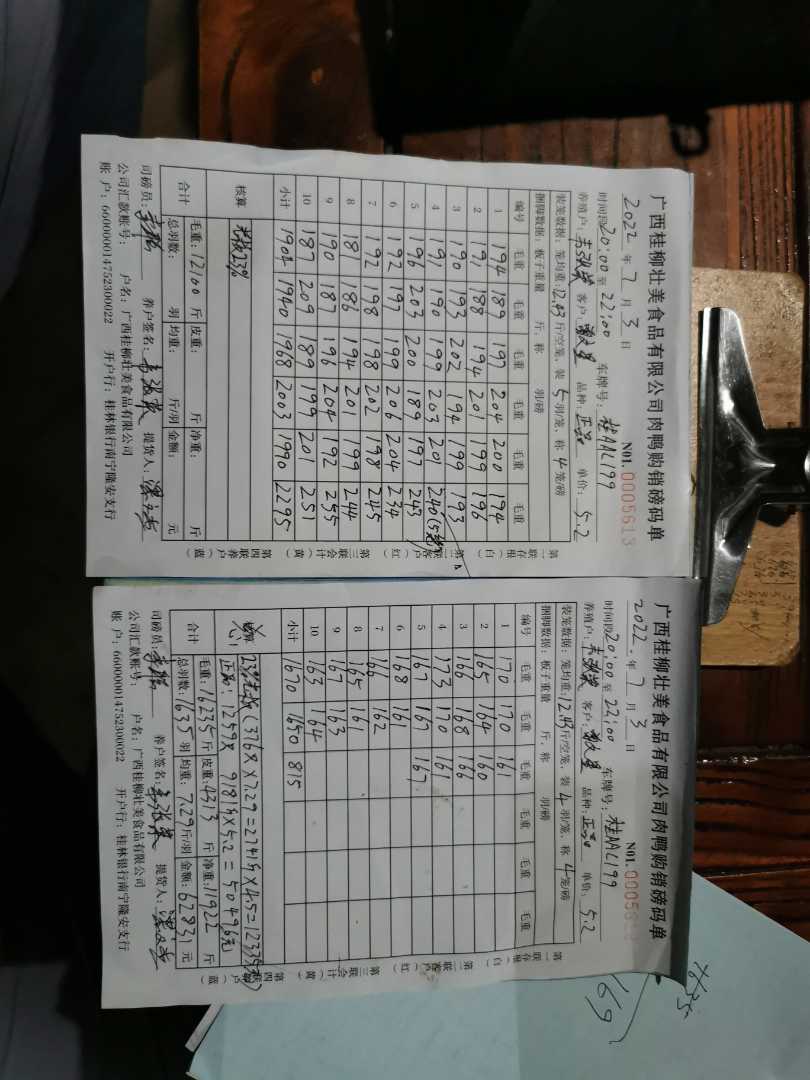 广西桂柳壮美食品有限公司肉鸭购销磅码单
2022 年 7 月 3 日 N01. 0005613
时间段20:00至22:00 车牌号:桂AAL199
养殖户: 客户: 品种:正品 单价:5.2
装笼数据:笼均重:12.83斤/空笼、装 5 羽/笼、称 4 笼/磅
捆脚数据:板子重量 斤、称 羽/磅
编号 毛重 毛重 毛重 毛重 毛重 毛重
1 194 189 197 204 200 194
2 191 188 194 201 199 196
3 190 193 202 194 199 193
4 191 190 199 203 201 240(5笼)
5 196 203 200 189 197 243
6 192 197 199 206 204 234
7 192 198 198 202 198 245
8 181 186 194 201 199 244
9 190 187 196 204 192 255
10 187 209 189 199 201 251
小计 1904 1940 1968 2003 1990 2295
核算 23%
合计 毛重:12100斤 皮重: 斤 净重: 斤
总羽数: 羽 均重: 斤/羽 金额: 元
司磅员: 养户签名: 提货人:
公司汇款帐号: 户名:广西桂柳壮美食品有限公司
账 户:660000014752300022 开户行:桂林银行南宁隆安支行
第一联存根(白) 第二联客户(红) 第三联会计(黄) 第四联养户(蓝)
广西桂柳壮美食品有限公司肉鸭购销磅码单
2022 年 7 月 3 日 N01. 00056
时间段20:00至22:00 车牌号:桂AAL199
养殖户: 客户: 品种:正品 单价:5.2
装笼数据:笼均重:12.83斤/空笼、装 4 羽/笼、称 4 笼/磅
捆脚数据:板子重量 斤、称 羽/磅
编号 毛重 毛重 毛重 毛重 毛重 毛重
1 170 170 161
2 165 164 160
3 166 168 166
4 173 170 161
5 167 167 167
6 168 161
7 166 162
8 165 161
9 167 163
10 163 164
小计 1670 1650 815
核算 23% (376只×7.29=2741斤×4.5=12335元)
正品:1259只 9181斤×5.2=50496元
合计 毛重:16235斤 皮重:4313斤 净重:11922斤
总羽数:1635羽 均重:7.29斤/羽 金额:62831元
司磅员: 养户签名: 提货人:
公司汇款帐号: 户名:广西桂柳壮美食品有限公司
账 户:660000014752300022 开户行:桂林银行南宁隆安支行
第一联存根(白) 第二联客户(红) 第三联会计(黄) 第四联养户(蓝)